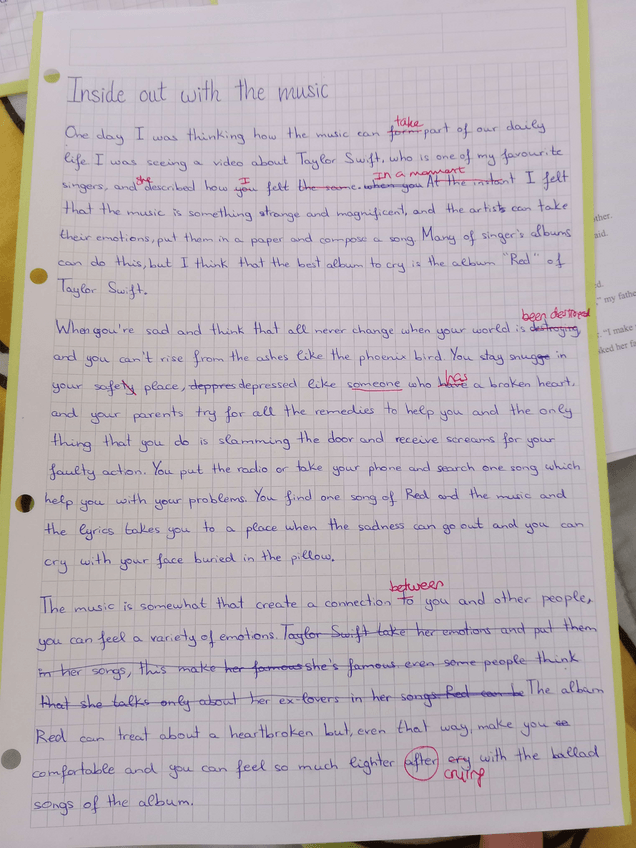 Inside out with the music
take
One day I was thinking how the music can form part of our daily
life. I was seeing a video about Taylor Swift, who is one of my favourite
In a moment
singers, and she described how you I felt the same. when you At the instant I felt
that the music is something strange and magnificent, and the artists can take
their emotions, put them in a paper and compose a song. Many of singer's albums
can do this, but I think that the best album to cry is the album "Red" of
Taylor Swift.
been destroyed
When you're sad and think that all never change when your world is destroying
and you can't rise from the ashes like the phoenix bird. You stay snugge in
your safety place, deppres depressed like someone who have has a broken heart,
and your parents try for all the remedies to help you and the only
thing that you do is slamming the door and receive screams for your
faulty action. You put the radio or take your phone and search one song which
help you with your problems. You find one song of Red and the music and
the lyrics takes you to a place when the sadness can go out and you can
cry with your face buried in the pillow.
between
The music is somewhat that create a connection to you and other people,
you can feel a variety of emotions. Taylor Swift take her emotions and put them
in her songs, this make her famous she's famous even some people think
that she talks only about her ex-lovers in her songs Red can be The album
Red can treat about a heartbroken but, even that way, make you so
comfortable and you can feel so much lighter after cry with the ballad
crying
songs of the album.
ther.
aid.
d.
" my fathe
. "I make
ked her fa